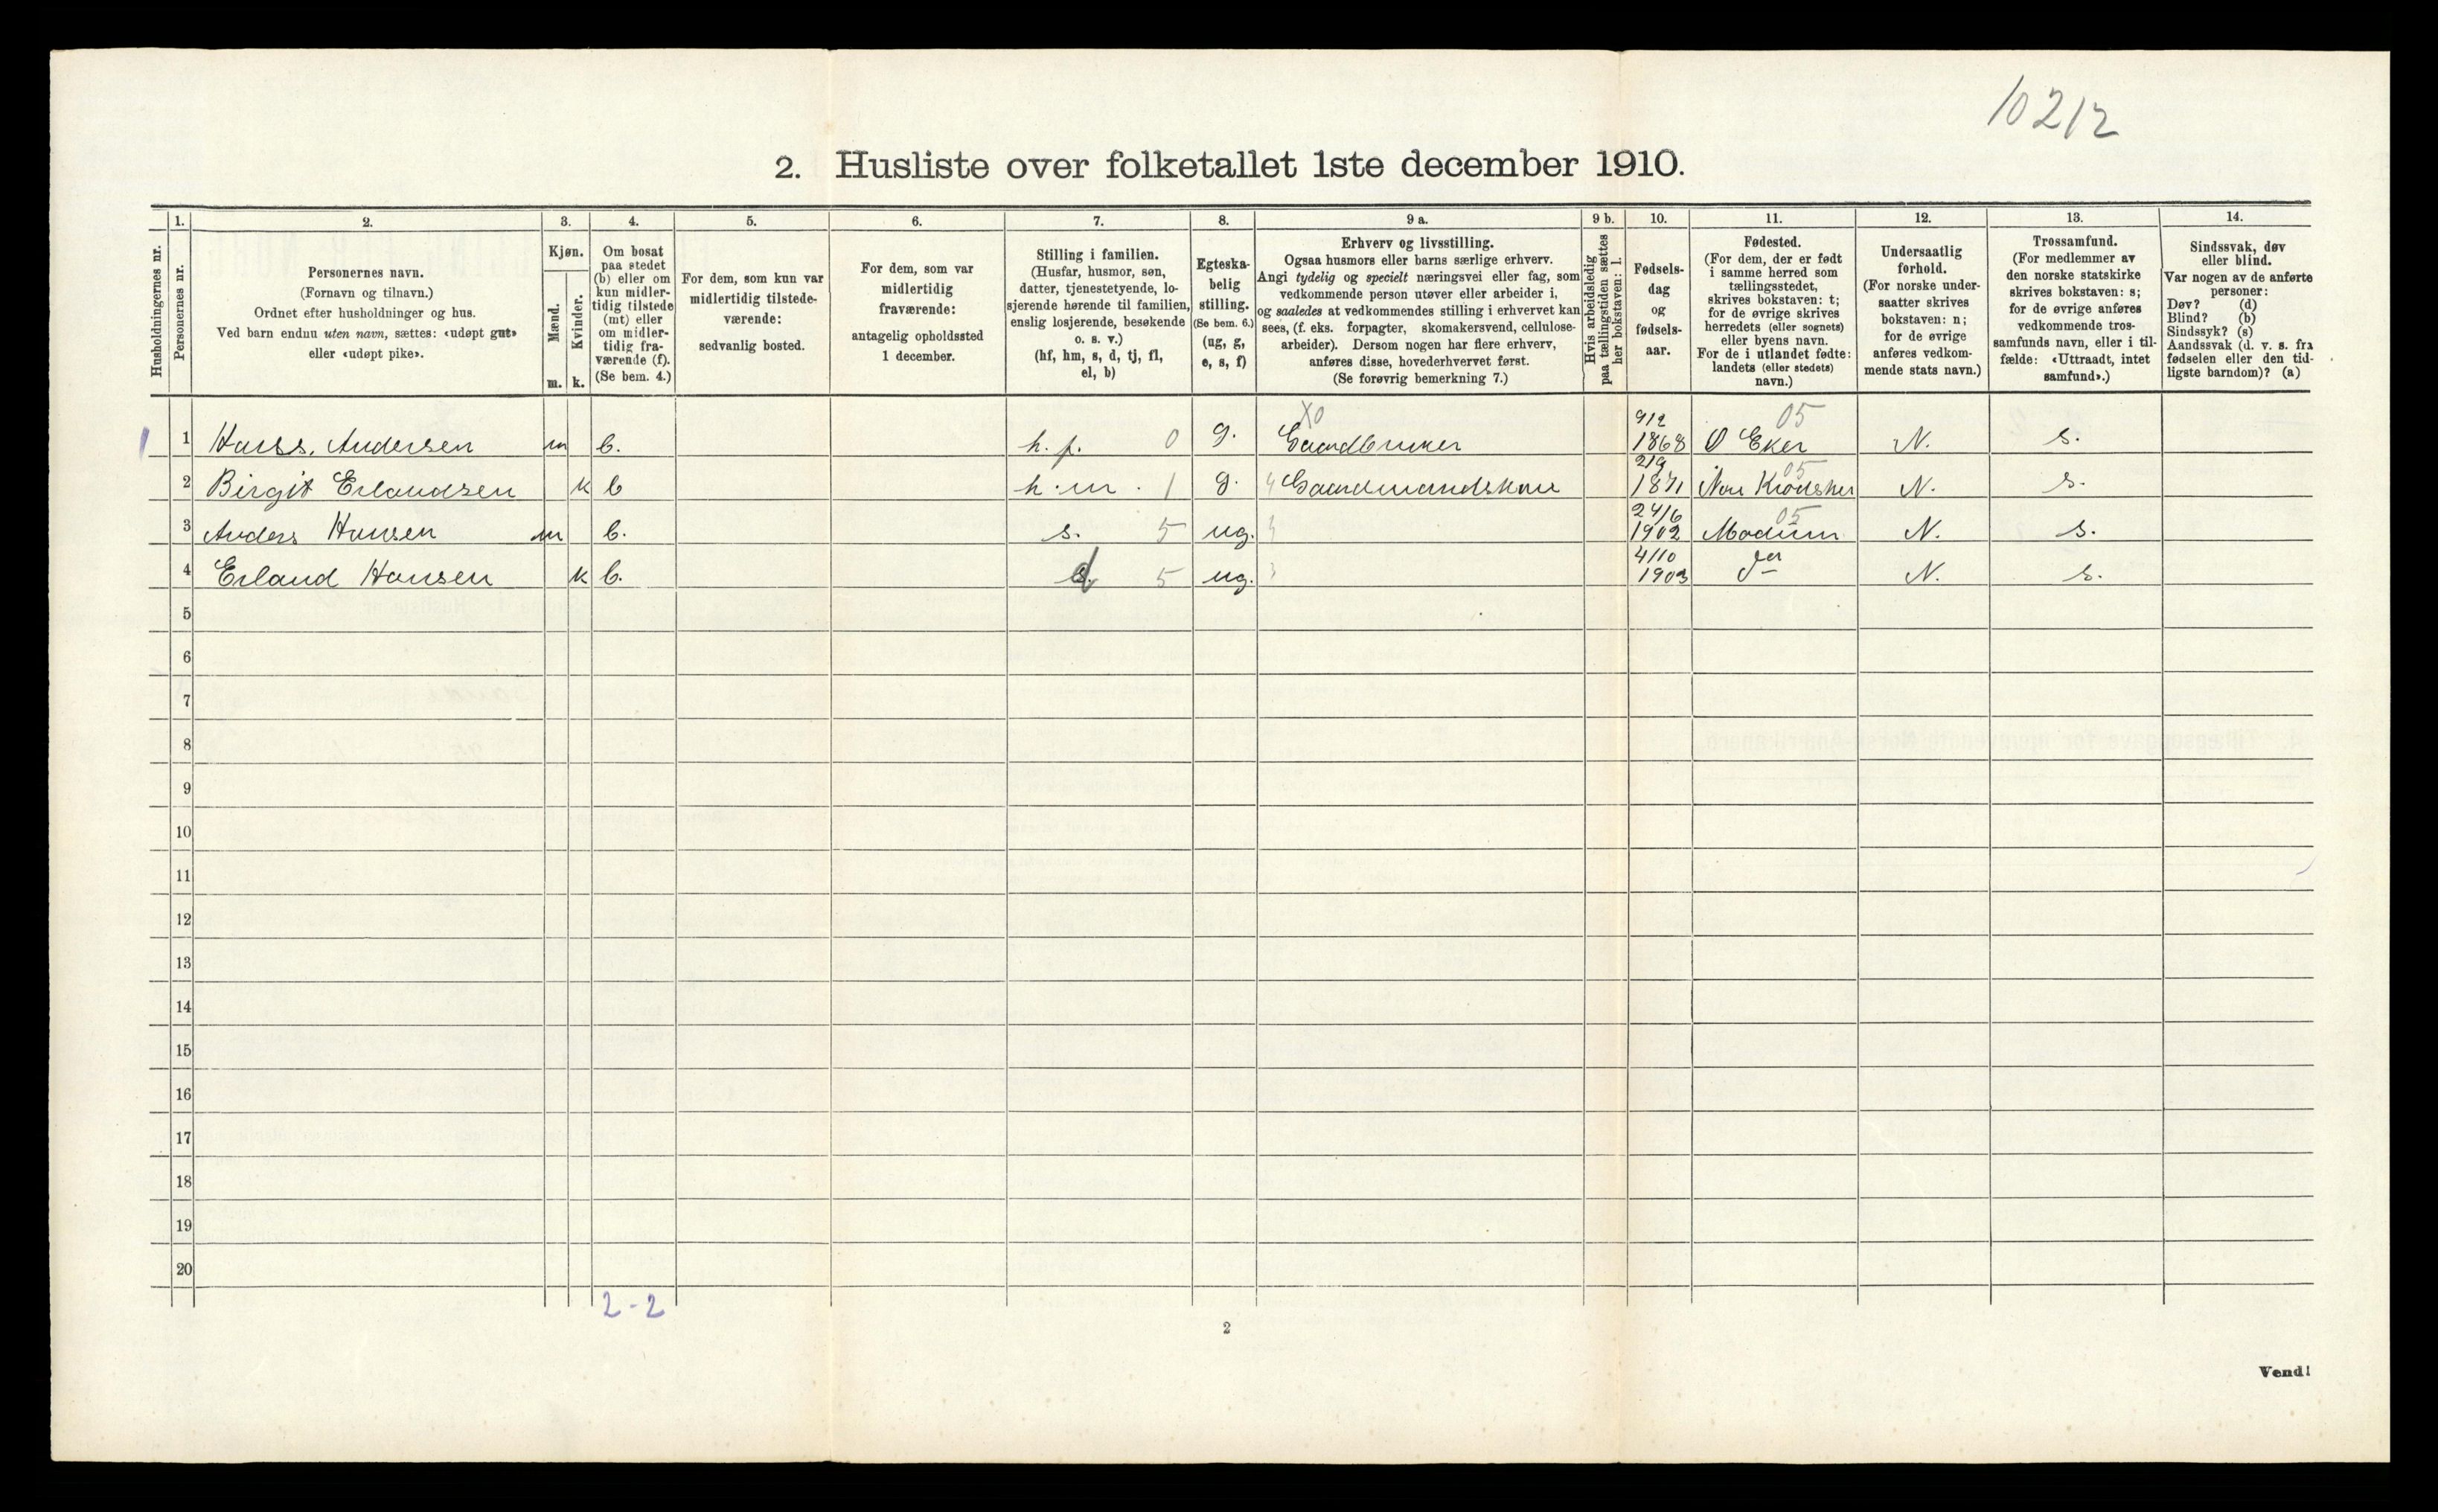 10212
2. Husliste over folketallet 1ste december 1910.
Husholdningernes nr.
1.
Personernes nr.
2.
Personernes navn.
(Fornavn og tilnavn.)
Ordnet efter husholdninger og hus.
Ved barn endnu uten navn, sættes: «udøpt gut»
eller «udøpt pike».
3.
Kjøn.
Mænd.
Kvinder.
m. k.
4.
Om bosat
paa stedet
(b) eller om
kun midler-
tidig tilstede
(mt) eller
om midler-
tidig fra-
værende (f).
(Se bem. 4.)
5.
For dem, som kun var
midlertidig tilstede-
værende:
sedvanlig bosted.
6.
For dem, som var
midlertidig
fraværende:
antagelig opholdssted
1 december.
7.
Stilling i familien.
(Husfar, husmor, søn,
datter, tjenestetyende, lo-
sjerende hørende til familien,
enslig losjerende, besøkende
o. s. v.)
(hf, hm, s, d, tj, fl,
el, b)
8.
Egteska-
belig
stilling.
(Se bem. 6.)
(ug, g,
e, s, f)
9 a.
Erhverv og livsstilling.
Ogsaa husmors eller barns særlige erhverv.
Angi tydelig og specielt næringsvei eller fag, som
vedkommende person utøver eller arbeider i,
og saaledes at vedkommendes stilling i erhvervet kan
sees, (f. eks. forpagter, skomakersvend, cellulose-
arbeider). Dersom nogen har flere erhverv,
anføres disse, hovederhvervet først.
(Se forøvrig bemerkning 7.)
9 b.
Hvis arbeidsledig
paa tællingstiden sættes
her bokstaven: l.
10.
Fødsels-
dag
og
fødsels-
aar.
11.
Fødested.
(For dem, der er født
i samme herred som
tællingsstedet,
skrives bokstaven: t;
for de øvrige skrives
herredets (eller sognets)
eller byens navn.
For de i utlandet fødte:
landets (eller stedets)
navn.)
12.
Undersaatlig
forhold.
(For norske under-
saatter skrives
bokstaven: n;
for de øvrige
anføres vedkom-
mende stats navn.)
13.
Trossamfund.
(For medlemmer av
den norske statskirke
skrives bokstaven: s;
for de øvrige anføres
vedkommende tros-
samfunds navn, eller i til-
fælde: «Uttraadt, intet
samfund».)
14.
Sindssvak, døv
eller blind.
Var nogen av de anførte
personer:
Døv? (d)
Blind? (b)
Sindssyk? (s)
Aandssvak (d. v. s. fra
fødselen eller den tid-
ligste barndom)? (a)
X0 9/2 05
1 Hans. Andersen m b. h. f. 0 g. Gaardbruker 1868 Ø Eker N. s.
21/9 05
2 Birgit Erlandsen k b h. m. 1 g. 4 Gaardmandskone 1871 N. s.
24/6 05
3 Anders Hansen m b. s. 5 ug. 1902 Modum N. s.
4/10
4 Erland Hansen k b. d 5 ug. 1903 do N. s.
5
6
7
8
9
10
11
12
13
14
15
16
17
18
19
20
2-2
2
Vend!